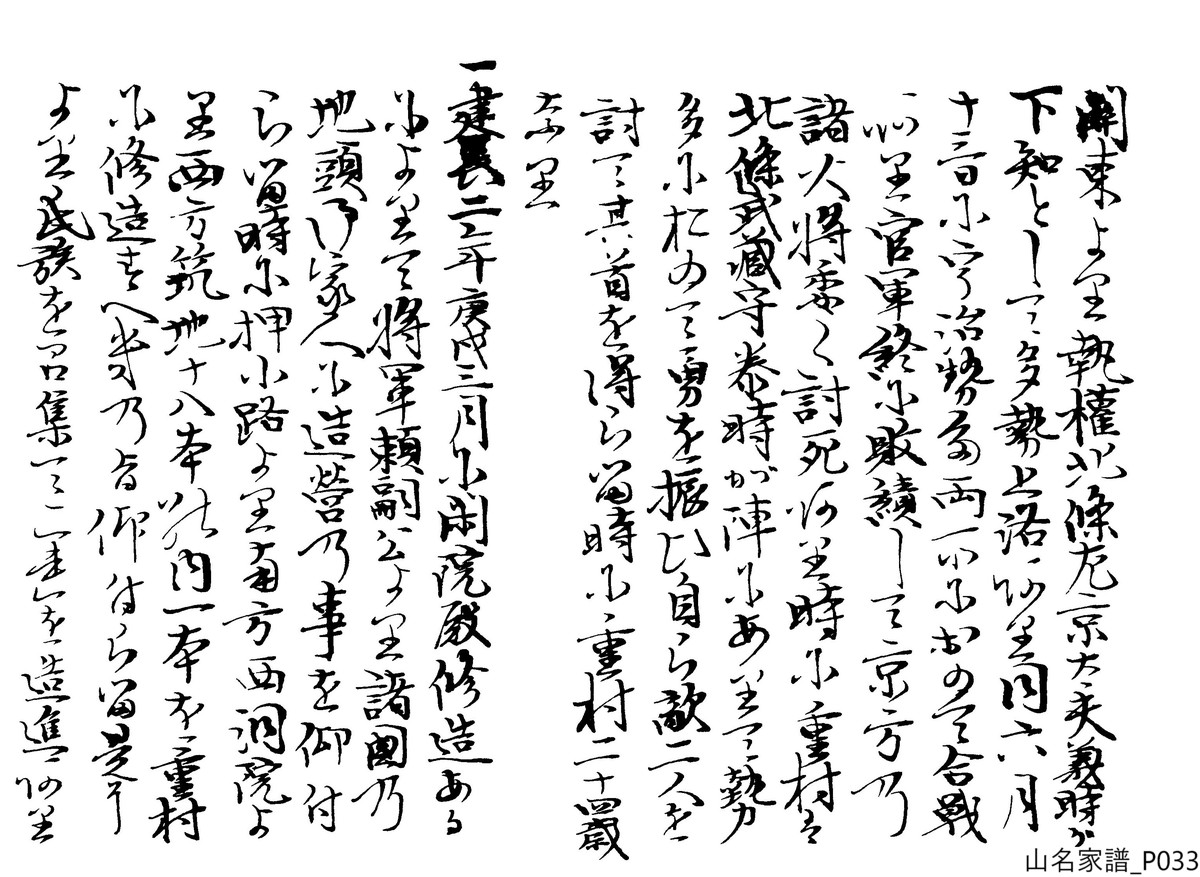 関東より執權北條左京大夫義時が
下知として多勢上洛あり同六月
十三日に宇治勢多両所におゐて合戦
あり官軍終に敗績して京方の
諸大將悉く討死あり時に重村は
北條武藏守泰時が陣にありて勢
多におゐて勇を振ひ自ら敵二人を
討て其首を得らる時に重村二十四歳
なり
一建長二年庚戌三月に閑院殿修造ある
によりて將軍頼嗣公より諸國の
地頭御家人に造營の事を仰付
らる時に押小路より南方西洞院よ
り西方築地十八本此内一本を重村
に修造すへきの旨仰付らる是に
より氏族を召集て二本を造進あり
山名家譜_P033